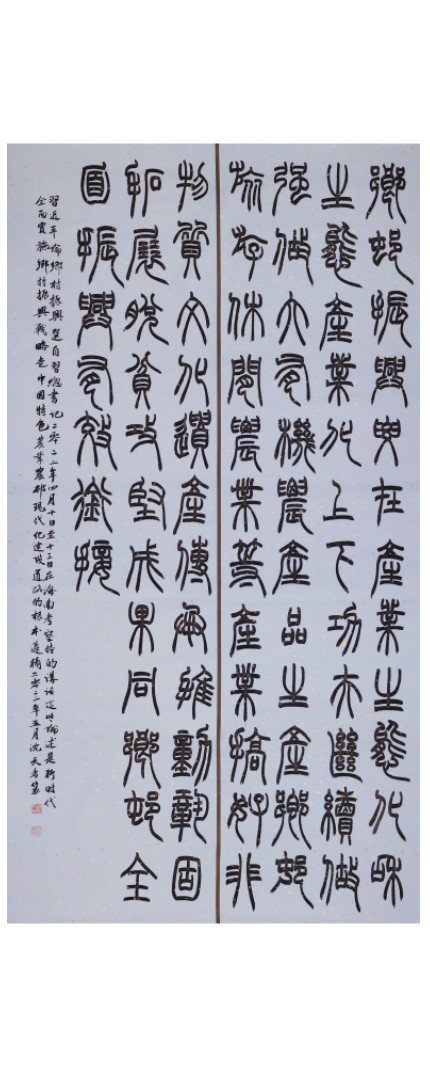 鄉邨振興要在產業生態化和
生態產業化上下功夫繼續做
强做大有機農產品生產鄉邨
旅游休閒農業等產業搞好非
物質文化遺產傳承推動鞏固
拓展脫貧攻堅成果同鄉邨全
面振興有效銜接
習近平論鄉村振興选自習總書记二零二二年四月十日至十三日在海南考察時的講話这些論述是新时代
全面實施鄉村振興戰略走中国特色農業農邨現代化建設道路的根本遵循二零二二年五月沈天篆